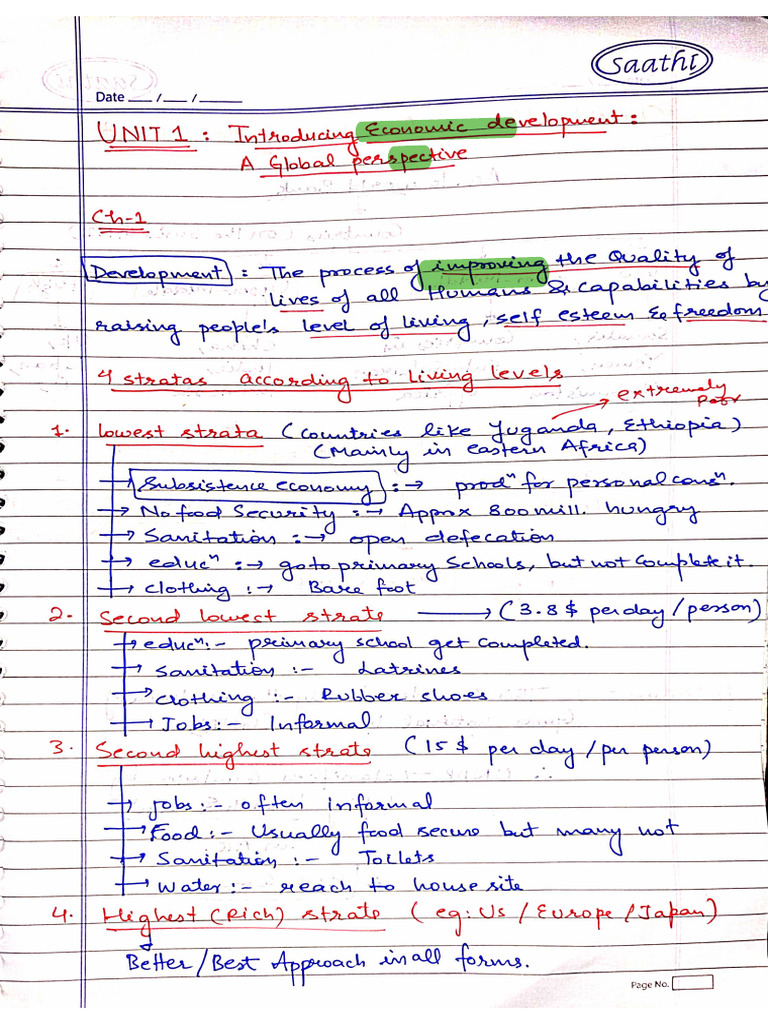 Saathi
Date ___ /___ / _____
UNIT 1 : Introducing Economic development :
A Global perspective
Ch-1
Development : The process of improving the Quality of
lives of all Humans & capabilities by
raising people's level of living, self esteem & freedom
4 stratas according to living levels
extremely
Poor
1. lowest strata (countries like Yuganda, Ethiopia)
(Mainly in eastern Africa)
→ Subsistence economy :→ prodⁿ for personal consⁿ.
→ No food Security :→ Approx 800 mill. hungry
→ Sanitation :→ open defecation
→ educⁿ :→ go to primary Schools, but not complete it.
→ clothing :→ Bare foot
2. Second lowest strate → (3.8$ per day / person)
→ educⁿ :- primary school get completed.
→ Sanitation :- Latrines
→ Clothing :- Rubber shoes
→ Jobs :- Informal
3. Second highest strate (15$ per day / per person)
→ jobs :- often informal
→ Food :- Usually food secure but many not
→ Sanitation :- Toilets
→ Water :- reach to house site
4. Highest (Rich) strate (eg: US / Europe / Japan)
Better / Best Approach in all forms.
Page No.